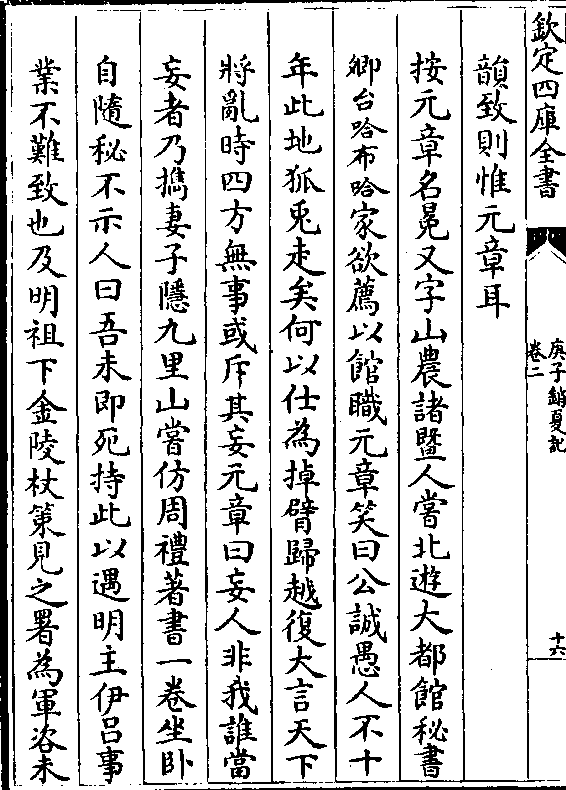 欽定四庫全書
庚子銷夏記
卷二
十六
韻致則惟元章耳
按元章名冕又字山農諸暨人嘗北遊大都館秘書
卿台哈布哈家欲薦以館職元章笑曰公誠愚人不十
年此地狐兎走矣何以仕為掉臂歸越復大言天下
將亂時四方無事或斥其妄元章曰妄人非我誰當
妄者乃攜妻子隱九里山嘗仿周禮著書一卷坐卧
自隨秘不示人曰吾未即死持此以遇明主伊吕事
業不難致也及明祖下金陵杖策見之署為軍咨未